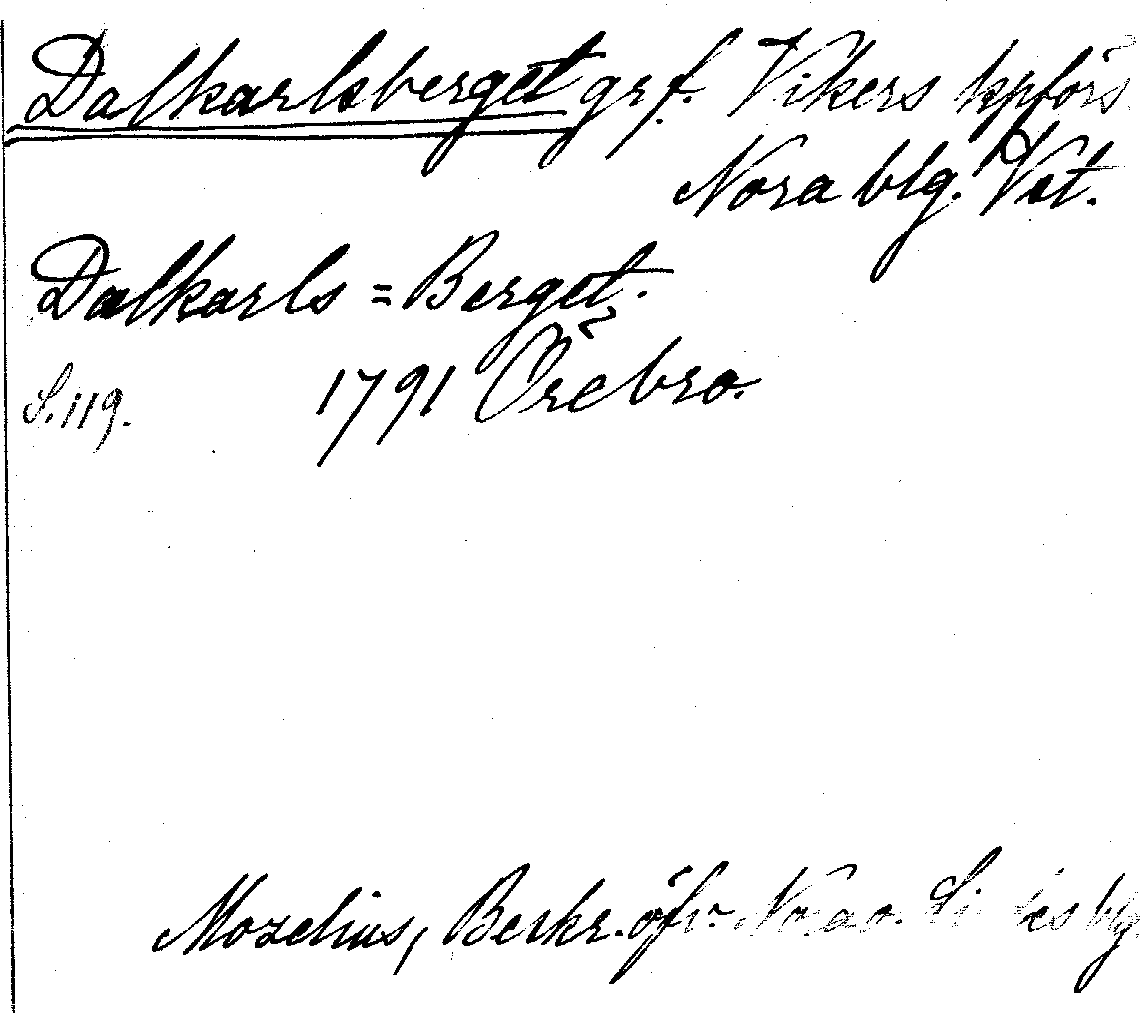 Dalkarlsberget grf. Vikers kpförs.
Nora blg. Vst.
Dalkarls=Berget.
S. 119. 1791 Örebro.
Mozelius, Beskr. öfv. Nora o. Lindes blg.